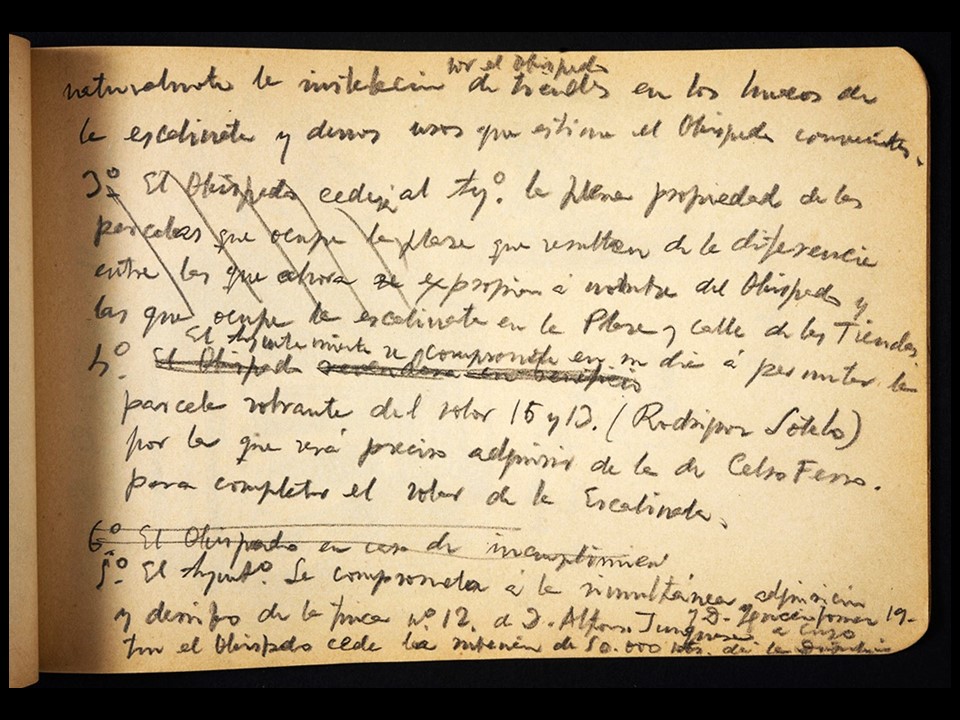 por el Obispado
naturalmente la instalacion de tiendas en los huecos de
la escalinata y demos usos que estime el Obispado convenientes.
3º El Obispado cederá al Ayº. la plena propiedad de las
parcelas que ocupe la plaza que resultan de la diferencia
entre las que ahora se expropian á nombre del Obispado y
las que ocupe la escalinata en la Plaza y calle de las Tiendas
El Ayuntamiento se compromete en su dia á permutar la
4º. El Obispado revendera en beneficio
parcela sobrante del solar 15 y 13. (Rodriguez Sotelo)
por la que será preciso adquirir de la de Celso Ferro.
para completar el solar de la Escalinata.
6º El Obispado en caso de
5º. El Ayuntº. Se compromete á la simultánea adquisición
y derribo de la finca nº. 12. de D. Alfonso y D. 19-
el Obispado cede la de 50.000 pts. de la